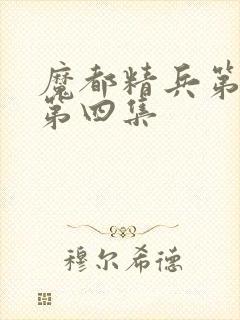 魔都精兵第
第四集
穆尔希德